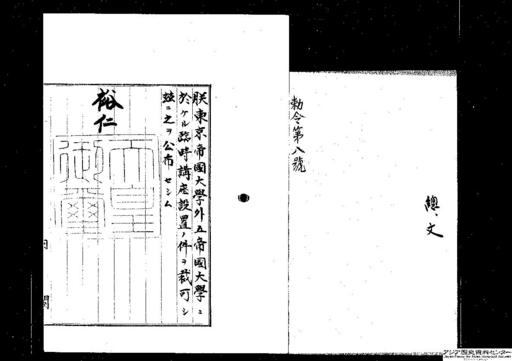 勅令第八號
總、文
朕東京帝國大學外五帝國大學ニ
於ケル臨時講座設置ノ件ヲ裁可シ
茲ニ之ヲ公布セシム
裕仁
天皇
御璽
閣
アジア歴史資料センター